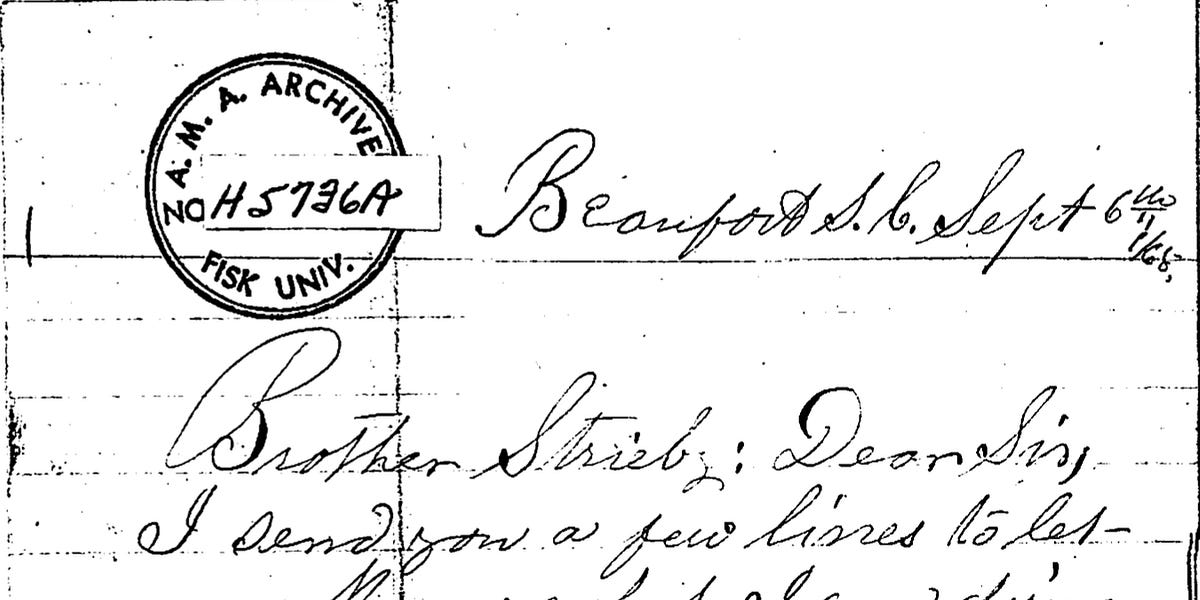 A. M. A. ARCHIVE
NO H5736A
FISK UNIV.
Beaufort S.C. Sept 6th
/68,
Brother Strieby: Dear Sir,
I send you a few lines to let